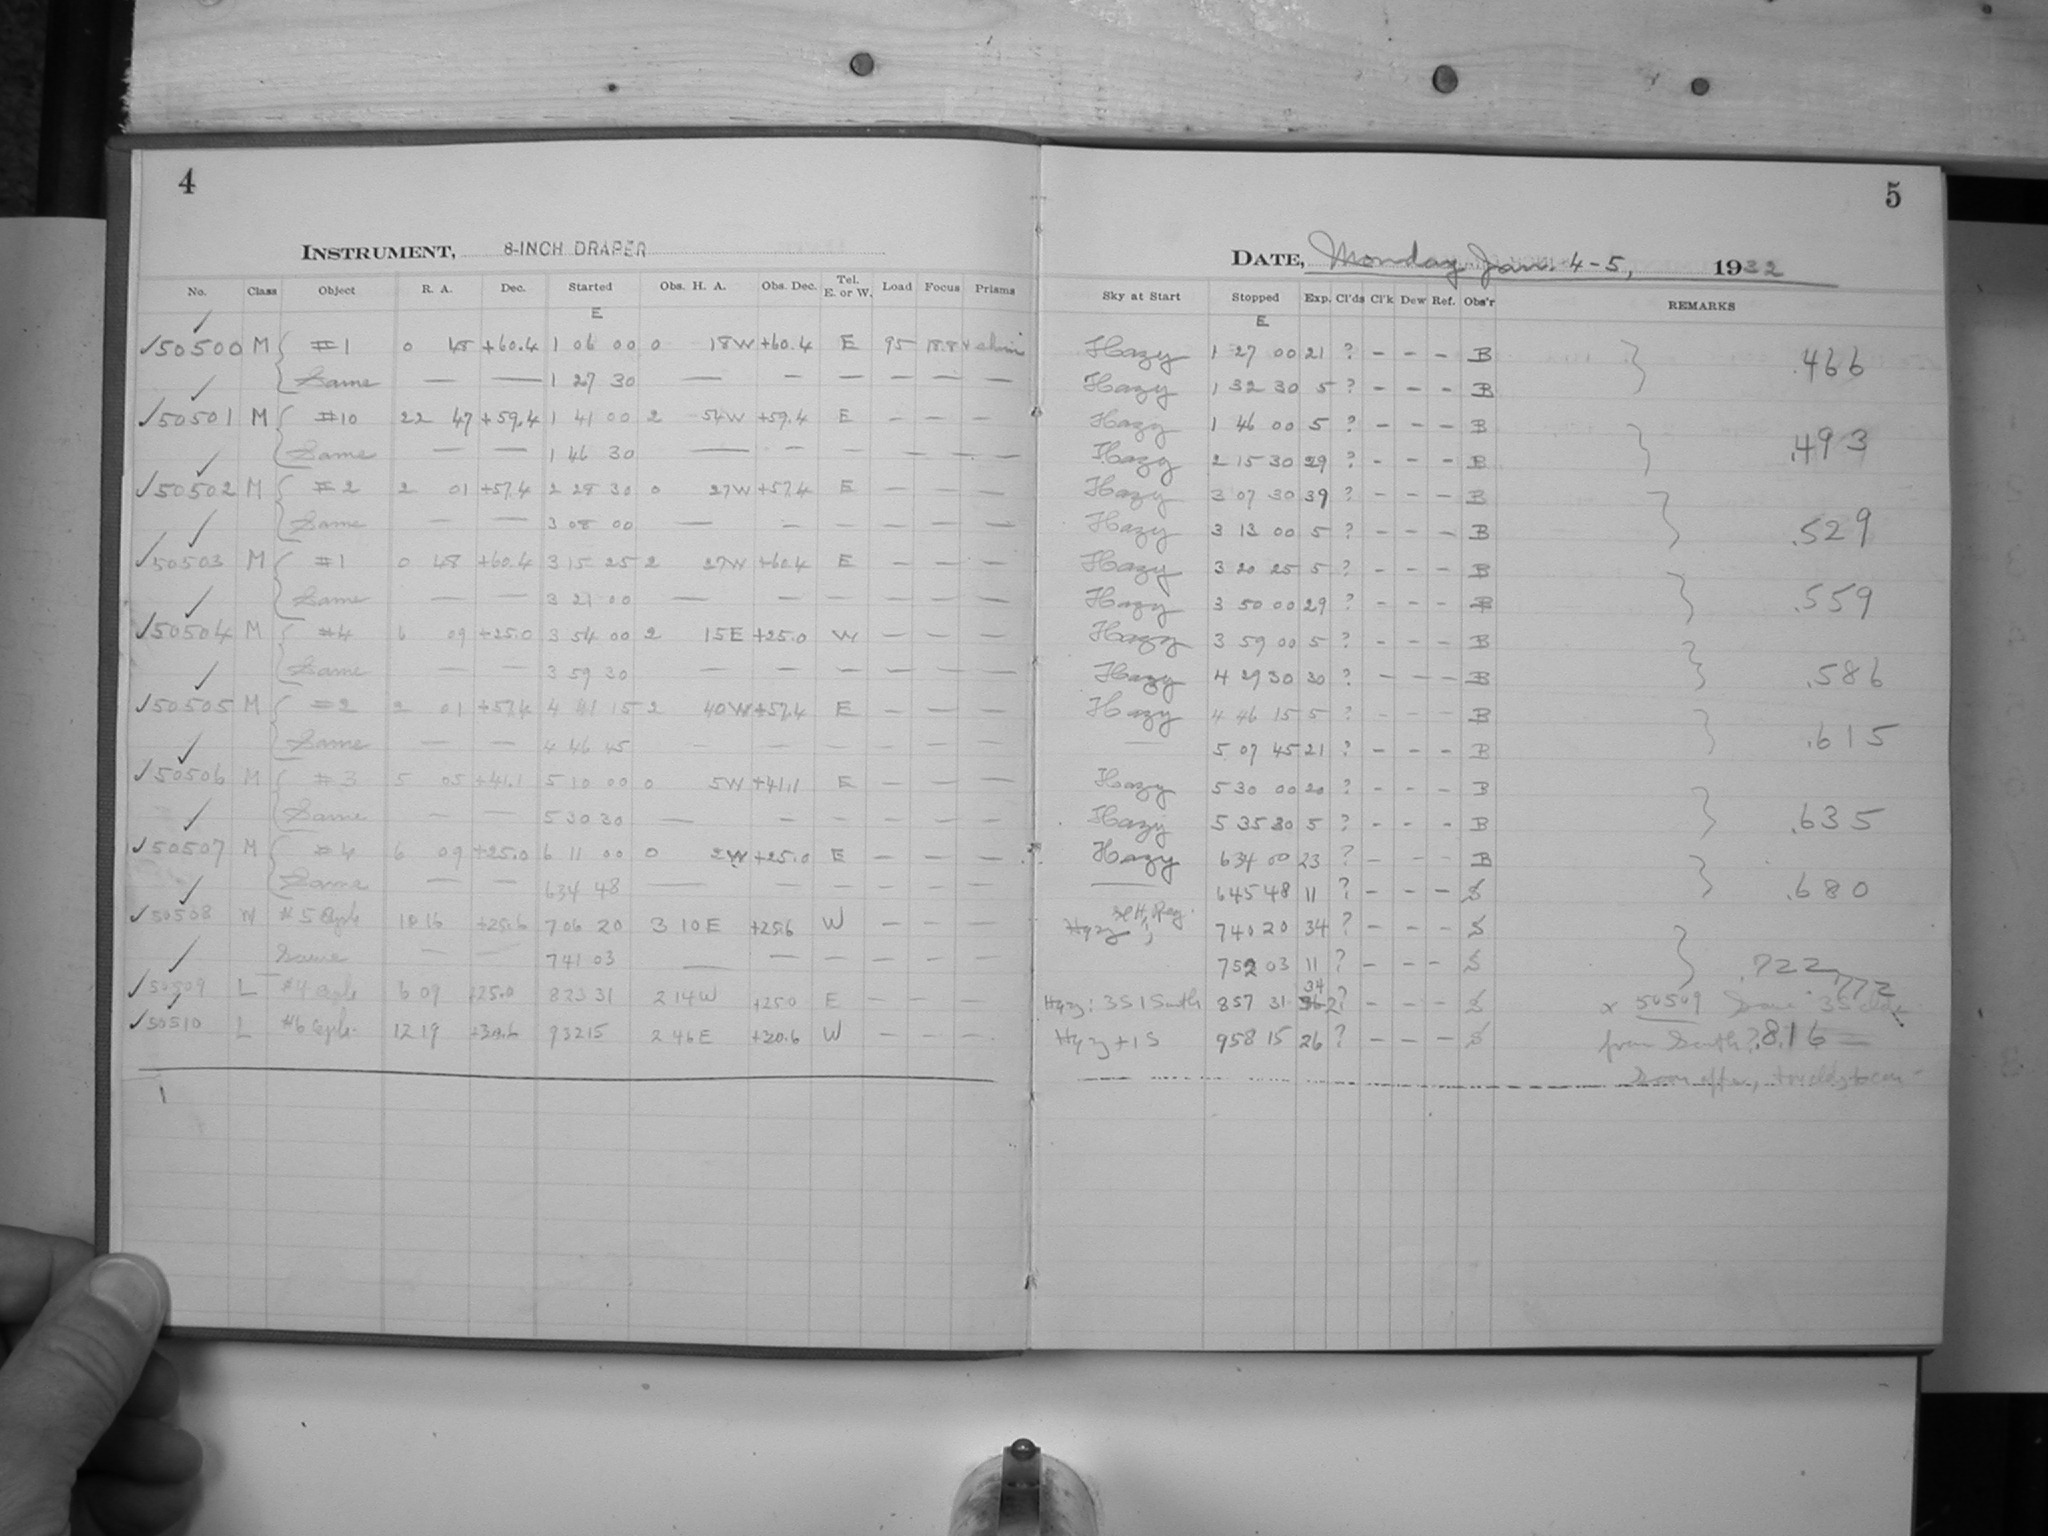 4 5
INSTRUMENT, 8-INCH DRAPER DATE, Monday Jan. 4-5, 1932
No. Class Object R. A. Dec. Started Obs. H. A. Obs. Dec. Tel. E. or W. Load Focus Prisms Sky at Start Stopped Exp. Cl'ds Cl'k Dew Ref. Obs'r REMARKS
E E
✓50500 M #1 0 48 +60.4 1 06 00 0 18W +60.4 E 95 Hazy 1 27 00 21 ? - - - B .466
Same — — 1 27 30 — — — — — — Hazy 1 32 30 5 ? - - - B
✓50501 M #10 22 47 +59.4 1 41 00 2 54W +59.4 E — — — Hazy 1 46 00 5 ? - - - B .493
Same — — 1 46 30 — — — — — — Hazy 2 15 30 29 ? - - - B
✓50502 M #2 2 01 +57.4 2 28 30 0 27W +57.4 E — — — Hazy 3 07 30 39 ? - - - B .529
Same — — 3 08 00 — — — — — — Hazy 3 13 00 5 ? - - - B
✓50503 M #1 0 48 +60.4 3 15 25 2 27W +60.4 E — — — Hazy 3 20 25 5 ? - - - B .559
Same — — 3 21 00 — — — — — — Hazy 3 50 00 29 ? - - - B
✓50504 M #4 6 09 +25.0 3 54 00 2 15E +25.0 W — — — Hazy 3 59 00 5 ? - - - B .586
Same — — 3 59 30 — — — — — — Hazy 4 29 30 30 ? - - - B
✓50505 M #2 2 01 +57.4 4 41 15 2 40W +57.4 E — — — Hazy 4 46 15 5 ? - - - B .615
Same — — 4 46 45 — — — — — — — 5 07 45 21 ? - - - B
✓50506 M #3 5 05 +41.1 5 10 00 0 5W +41.1 E — — — Hazy 5 30 00 20 ? - - - B .635
Same — — 5 30 30 — — — — — — Hazy 5 35 30 5 ? - - - B
✓50507 M #4 6 09 +25.0 6 11 00 0 2W +25.0 E — — — Hazy 6 34 00 23 ? - - - B .680
Same — — 6 34 48 — — — — — — — 6 45 48 11 ? - - - S
✓50508 M #5 10 16 +25.6 7 06 20 3 10E +25.6 W — — — Hazy 7 40 20 34 ? - - - S .722
Same — — 7 41 03 — — — — — — 7 52 03 11 ? - - - S
✓50509 L #4 6 09 +25.0 8 23 31 2 14W +25.0 E — — — Hazy: 3S 1 South 8 57 31 34 ? - - - S x 50509 .772
✓50510 L #6 12 19 +30.6 9 32 15 2 46E +30.6 W — — — Hazy + 1 S 9 58 15 26 ? - - - S from South? .816